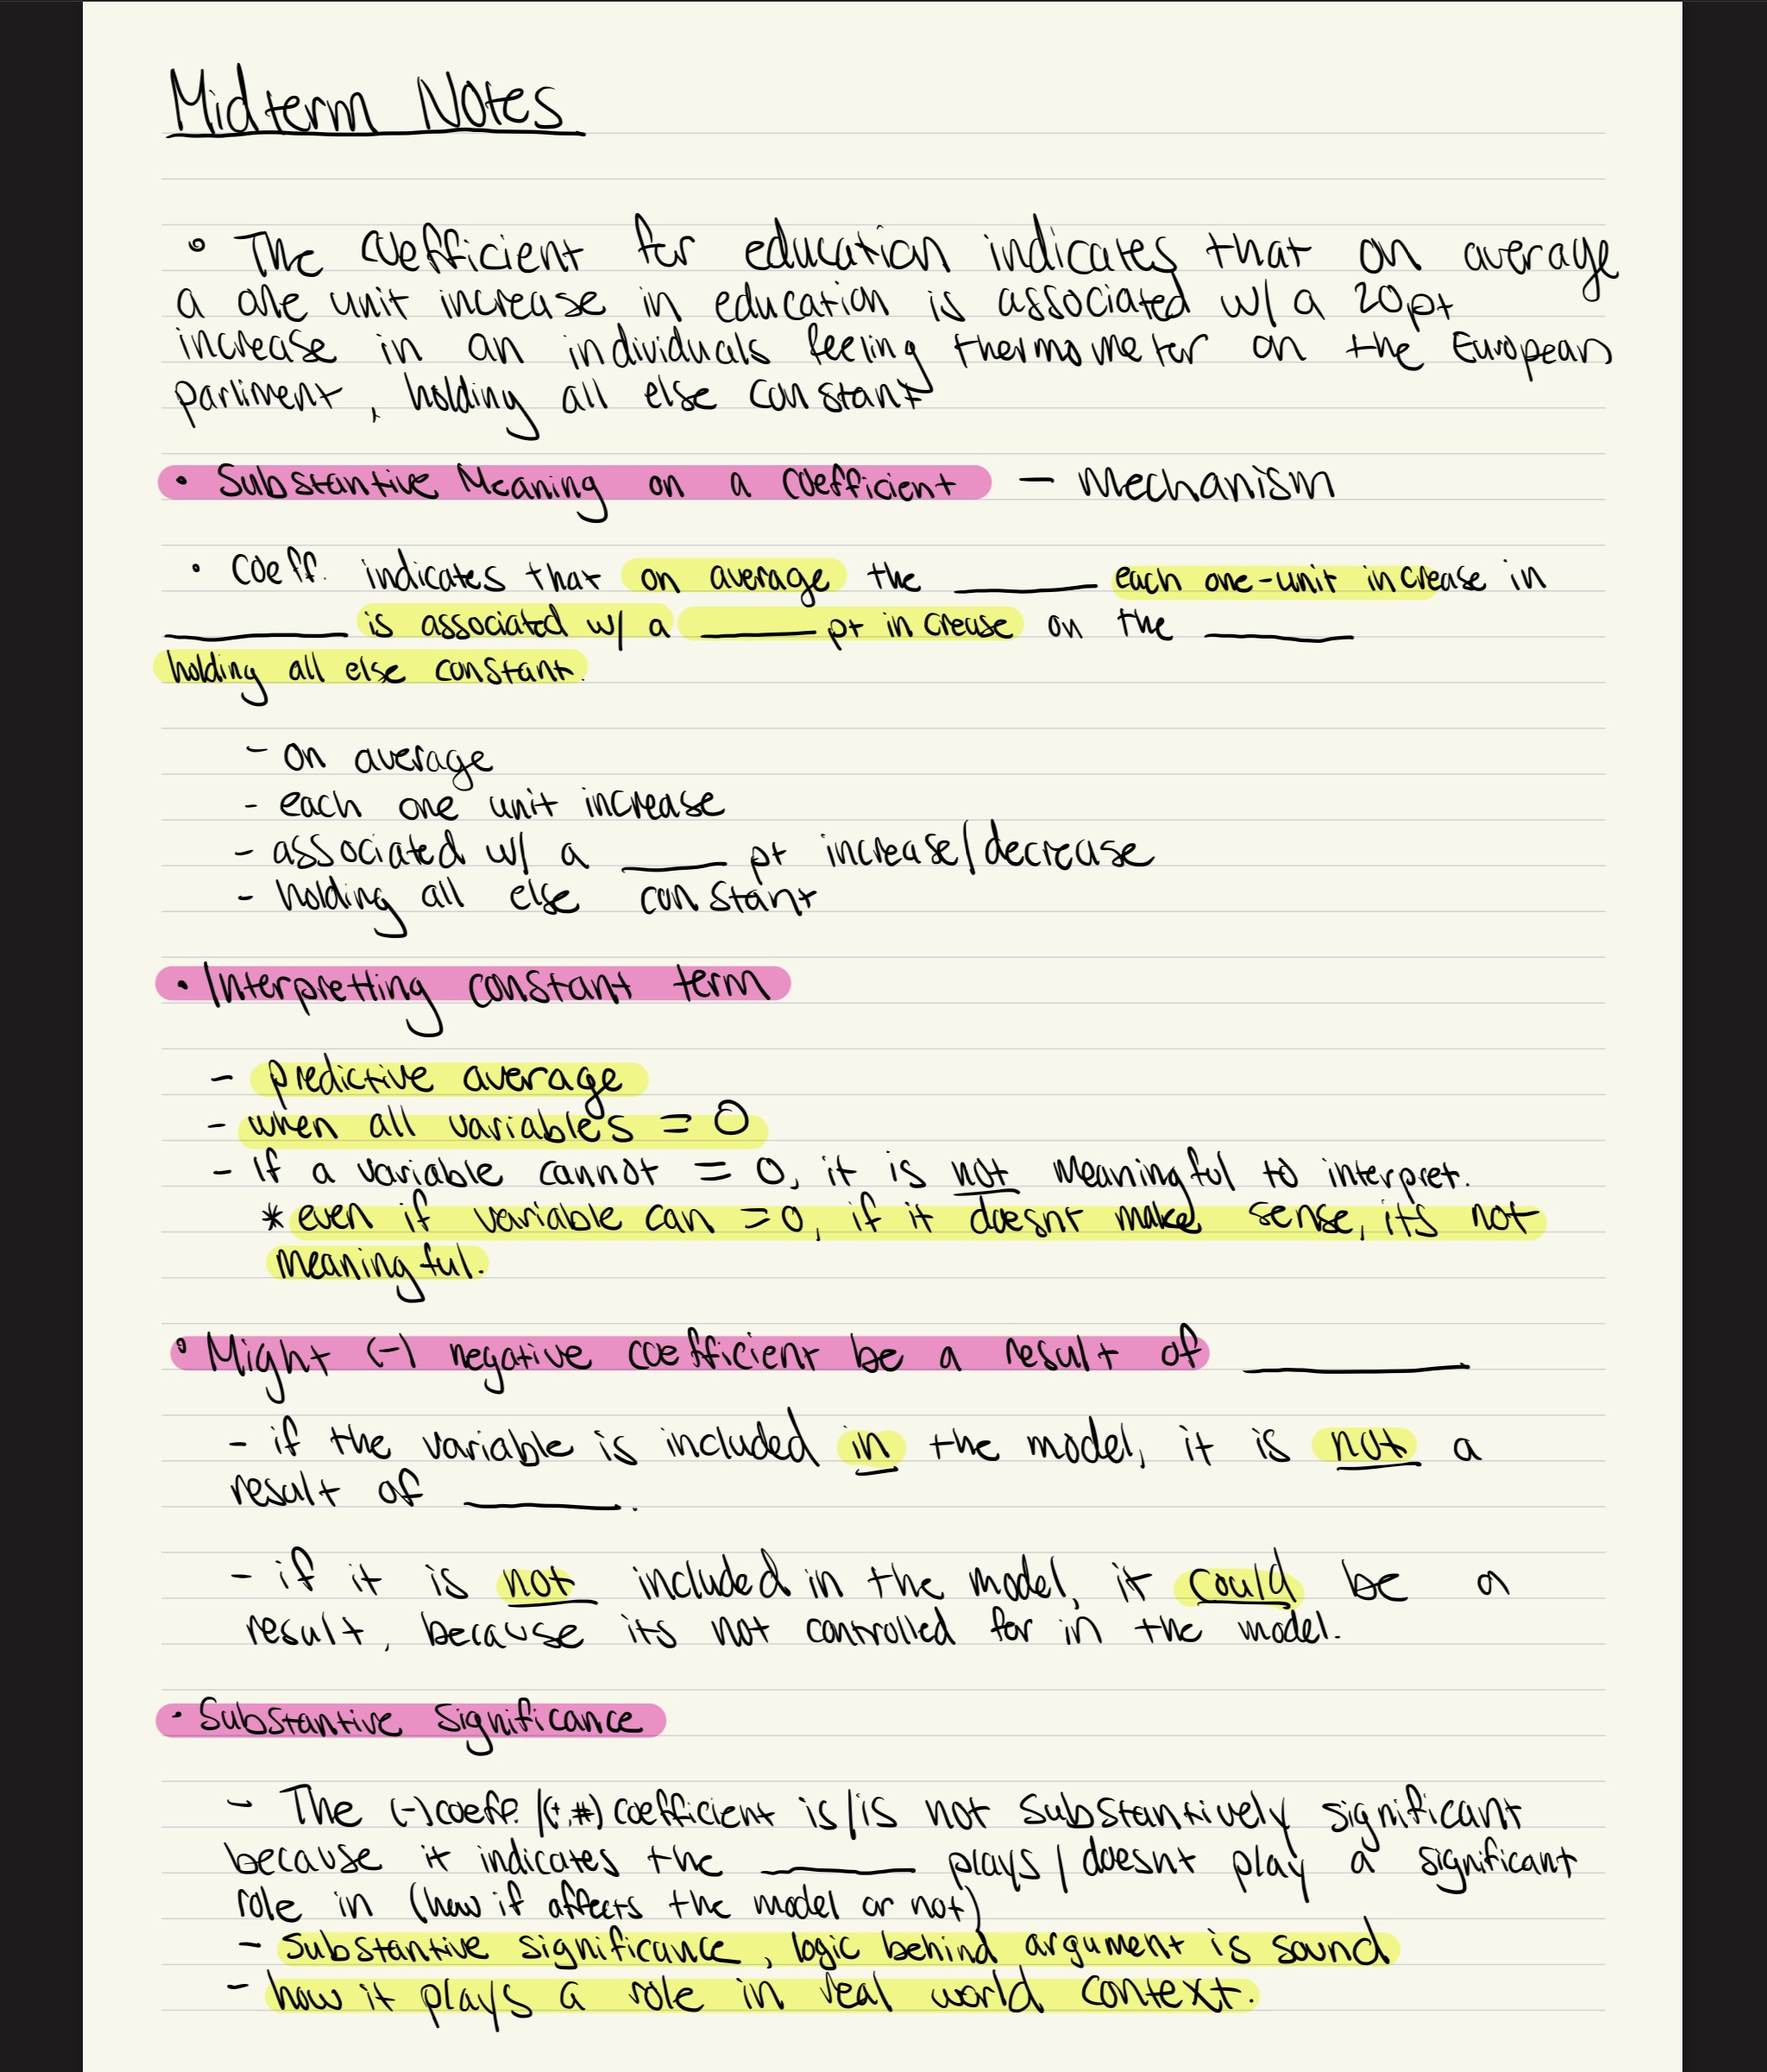 Midterm Notes
• The Coefficient for education indicates that on average
a one unit increase in education is associated w/ a 20pt
increase in an individuals feeling thermometer on the European
parliment, holding all else constant
• Substantive Meaning on a Coefficient — Mechanism
• Coeff. indicates that on average the ______ each one-unit increase in
______ is associated w/ a ______ pt increase on the ______
holding all else constant.
- on average
- each one unit increase
- associated w/ a ______ pt increase/decrease
- holding all else constant
• Interpretting constant term
- predictive average
- when all variables = 0
- If a variable cannot = 0, it is not meaningful to interpret.
* even if variable can = 0, if it doesnt make sense, it's not
meaningful.
• Might (-) negative coefficient be a result of ______
- if the variable is included in the model, it is not a
result of ______.
- if it is not included in the model, it could be a
result, because its not controlled for in the model.
• Substantive Significance
- The (-)coeff. /(+,#) coefficient is/is not substantively significant
because it indicates the ______ plays/doesnt play a significant
role in (how if affects the model or not)
- substantive significance, logic behind argument is sound
- how it plays a role in real world context.